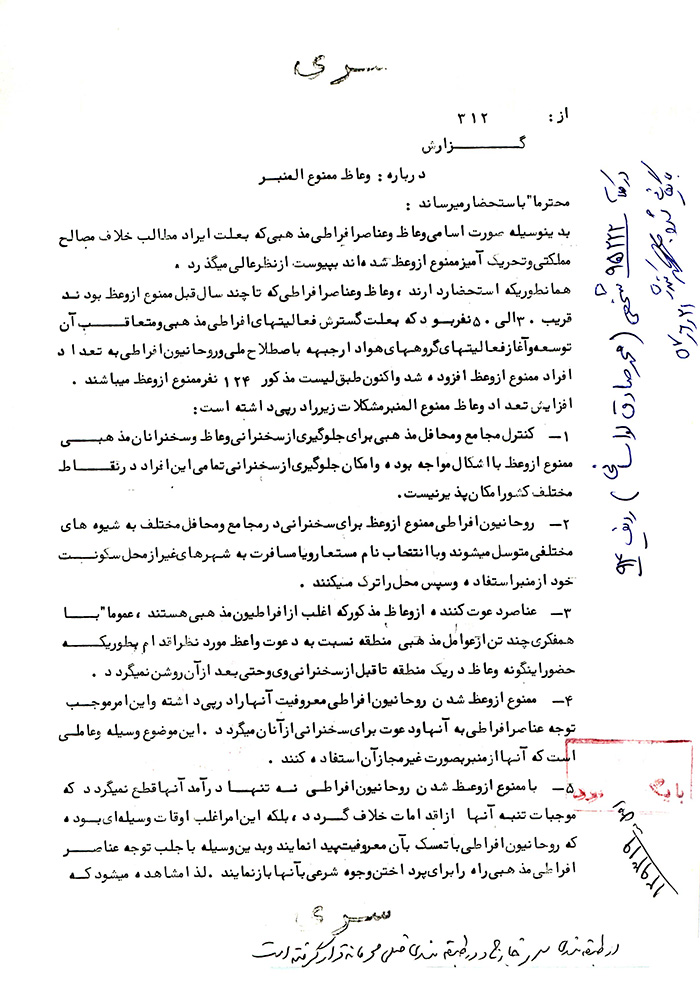 سری
از : ۳۱۲
گزارش
درباره : وعاظ ممنوع المنبر
محترما" باستحضار میرساند :
بدینوسیله صورت اسامی وعاظ و عناصر افراطی مذهبی که بعلت ایراد مطالب خلاف مصالح
مملکتی و تحریک آمیز ممنوع از وعظ شده اند بپیوست از نظر عالی میگذرد .
همانطوریکه استحضار دارند ، وعاظ و عناصر افراطی که تا چند سال قبل ممنوع از وعظ بودند
قریب ۳۰ الی ۵۰ نفر بود که بعلت گسترش فعالیتهای افراطی مذهبی و متعاقب آن
توسعه و آغاز فعالیتهای گروههای هوادار جبهه باصطلاح ملی و روحانیون افراطی به تعداد
افراد ممنوع از وعظ افزوده شد و اکنون طبق لیست مذکور ۱۲۴ نفر ممنوع از وعظ میباشند .
افزایش تعداد وعاظ ممنوع المنبر مشکلات زیر را در پی داشته است :
۱ـ کنترل مجامع و محافل مذهبی برای جلوگیری از سخنرانی وعاظ و سخنرانان مذهبی
ممنوع از وعظ با اشکال مواجه بوده و امکان جلوگیری از سخنرانی تمامی این افراد در نقاط
مختلف کشور امکان پذیر نیست .
۲ـ روحانیون افراطی ممنوع از وعظ برای سخنرانی در مجامع و محافل مختلف به شیوه های
مختلفی متوسل میشوند و با انتخاب نام مستعار و یا مسافرت به شهرهای غیر از محل سکونت
خود از منبر استفاده و سپس محل را ترک میکنند .
۳ـ عناصر دعوت کننده از وعاظ مذکور که اغلب از افراطیون مذهبی هستند ، عموما" با
همفکری چند تن از عوامل مذهبی منطقه نسبت به دعوت واعظ مورد نظر اقدام بطوریکه
حضور اینگونه وعاظ در یک منطقه تا قبل از سخنرانی وی و حتی بعد از آن روشن نمیگردد .
۴ـ ممنوع از وعظ شدن روحانیون افراطی معروفیت آنها را در پی داشته و این امر موجب
توجه عناصر افراطی به آنها و دعوت برای سخنرانی از آنان میگردد . این موضوع وسیله و عاملی
است که آنها از منبر بصورت غیر مجاز آن استفاده کنند .
۵ـ با ممنوع از وعظ شدن روحانیون افراطی نه تنها درآمد آنها قطع نمیگردد که
موجبات تنبه آنها از اقدامات خلاف گردد ، بلکه این امر اغلب اوقات وسیله ای بوده
که روحانیون افراطی با تمسک بآن معروفیت پیدا نمایند و بدین وسیله با جلب توجه عناصر
افراطی مذهبی راه را برای پرداختن وجوه شرعی بآنها باز نمایند . لذا مشاهده میشود که
سری
در طبقه بندی سری خارج و در طبقه بندی خیلی محرمانه قرار گرفته است
۹۵۲۲۲ شخصی (محمد صادق لواسانی) ردیف ۹۴